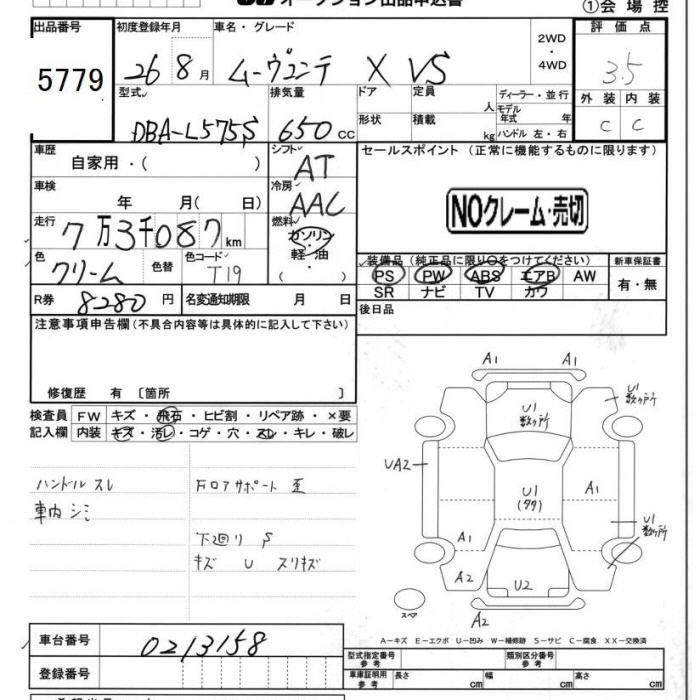 オークション出品申込書
①会場控
出品番号 初度登録年月 車名・グレード 2WD ・ 4WD 評価点
5779 26 8月 ムーヴコンテ X VS 3.5
型式 排気量 ドア 定員 人 ディーラー・並行 外装 内装
モデル年式 年
DBA-L575S 650cc 形状 積載 kg ハンドル 左・右 C C
車歴 自家用・( ) シフト AT セールスポイント (正常に機能するものに限ります)
車検 年 月( 日) 冷房 AAC NOクレーム・売切
走行 7万3千087km 燃料 ガソリン・軽油・( )
色 クリーム 色替 色コード T19 装備品 (純正品に限り○をつけてください) 新車保証書
PS PW ABS エアB AW 有・無
SR ナビ TV カワ
R券 8280円 名変通知期限 月 日 後日品
注意事項申告欄(不具合内容等は具体的に記入して下さい)
修復歴 有 〔箇所 〕
検査員 FW キズ・飛石・ヒビ割・リペア跡・×要
記入欄 内装 キズ・汚レ・コゲ・穴・スレ・キレ・破レ
ハンドルスレ
車内シミ
F ロアサポート 歪
下廻り S
キズ U スリキズ
A1 A1
U1 数ヶ所
U1 数ヶ所
UA2
U1
A1
U1 数ヶ所
A1
A2
U2
A2
スペア
A-キズ E-エクボ U-凹み W-補修跡 S-サビ C-腐食 XX-交換済
車台番号 0213158
型式指定番号 参考 類別区分番号 参考
登録番号
車庫証明用 参考 長さ cm 幅 cm 高さ cm